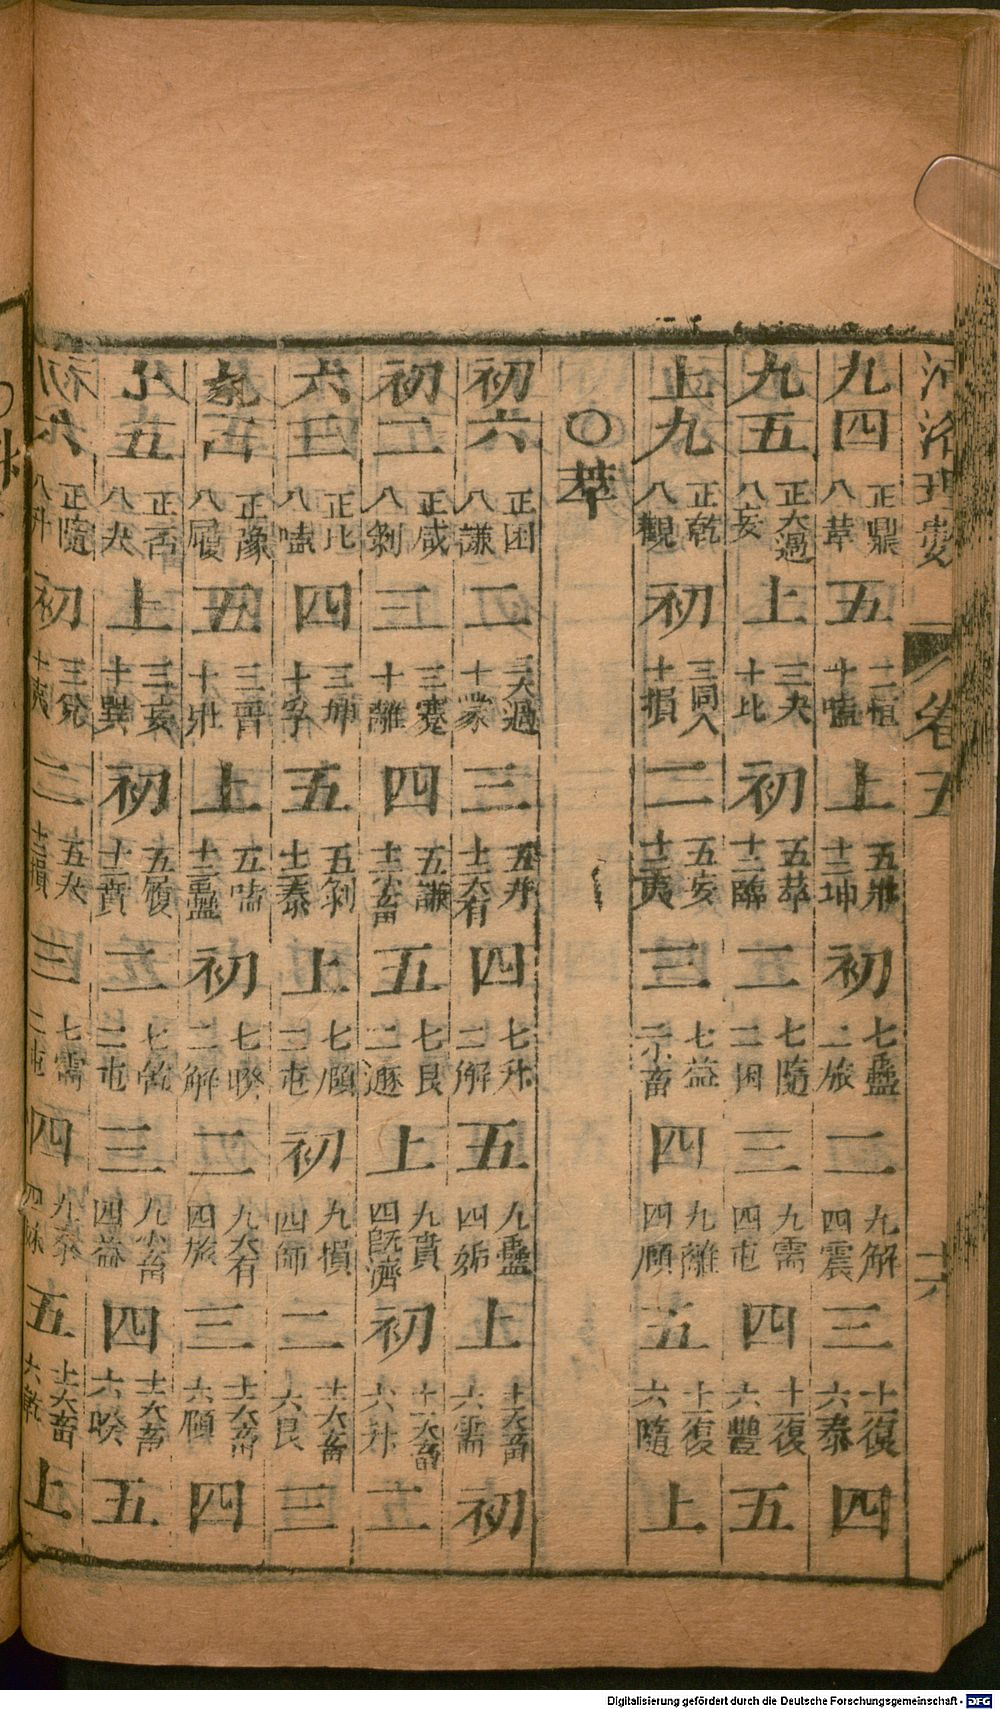 河洛理數 卷五 十六
九四 正鼎 八萃 五 三恒 十嗑 上 五壯 十二坤 初 七蠱 二旅 二 九解 四震 三 十一復 六泰 四
九五 正大過 八妄 上 三夬 十比 初 五萃 十二臨 二 七隨 二困 三 九需 四屯 四 十一復 六豐 五
上九 正乾 八觀 初 三同人 十損 二 五妄 十二夷 三 七益 二小畜 四 九離 四頤 五 十一復 六隨 上
○萃
初六 正困 八謙 二 三大過 十蒙 三 五井 十二大有 四 七升 二解 五 九蠱 四姤 上 十一大畜 六需 初
初二 正咸 八剝 三 三蹇 十離 四 五謙 十二大畜 五 七艮 二遯 上 九賁 四旣濟 初 十一大畜 六升 二
六三 正比 八嗑 四 三坤 十孚 五 五剝 十二泰 上 七頤 二屯 初 九損 四師 二 十一大畜 六艮 三
四 正豫 八履 五 三晉 十壯 上 五嗑 十二蠱 初 七睽 二解 二 九大有 四旅 三 十一大畜 六頤 四
五 正否 八夬 上 三妄 十巽 初 五履 十二賁 二 二屯 三 九小畜 四益 四 十一大畜 六睽 五
六 正隨 八升 初 三兌 十夷 二 五夬 十二損 三 七需 二屯 四 九泰 四妹 五 十一大畜 六乾 上
Digitalisierung gefördert durch die Deutsche Forschungsgemeinschaft - DFG